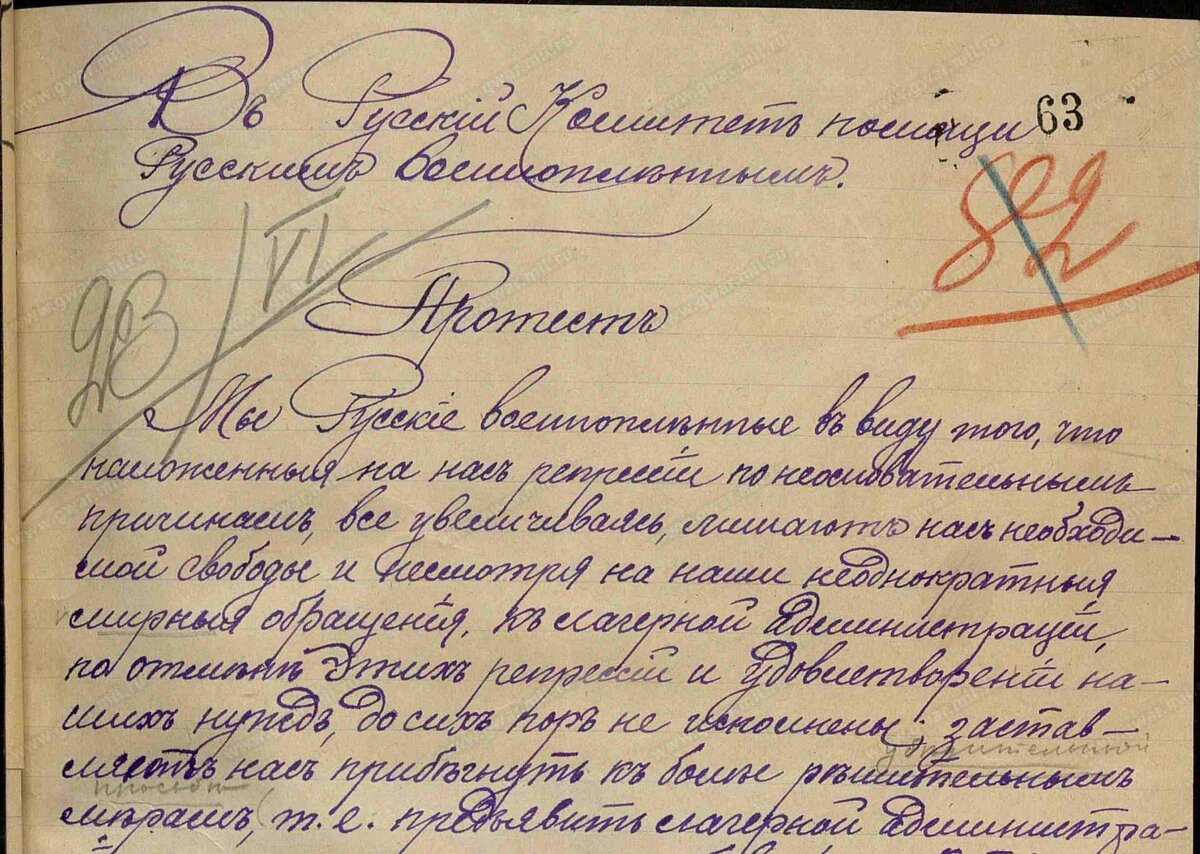 Въ Русскій Комитетъ помощи
Русскимъ военнопленнымъ.
63
82
23/VI
Протестъ
Мы Русскіе военнопленные въ виду того, что
наложенныя на насъ репрессіи по неосновательнымъ
причинамъ, все увеличиваясь, лишаютъ насъ необходи-
мой свободы и несмотря на наши неоднократныя
смирныя обращенія, къ лагерной Администраціи,
по отмѣнѣ этихъ репрессій и удовлетвореніи на-
шихъ нуждъ, до сихъ поръ не исполнены, застав-
ляетъ насъ прибѣгнуть къ болѣе рѣшительнымъ
мѣрамъ, т.е. предъявить лагерной Администра-